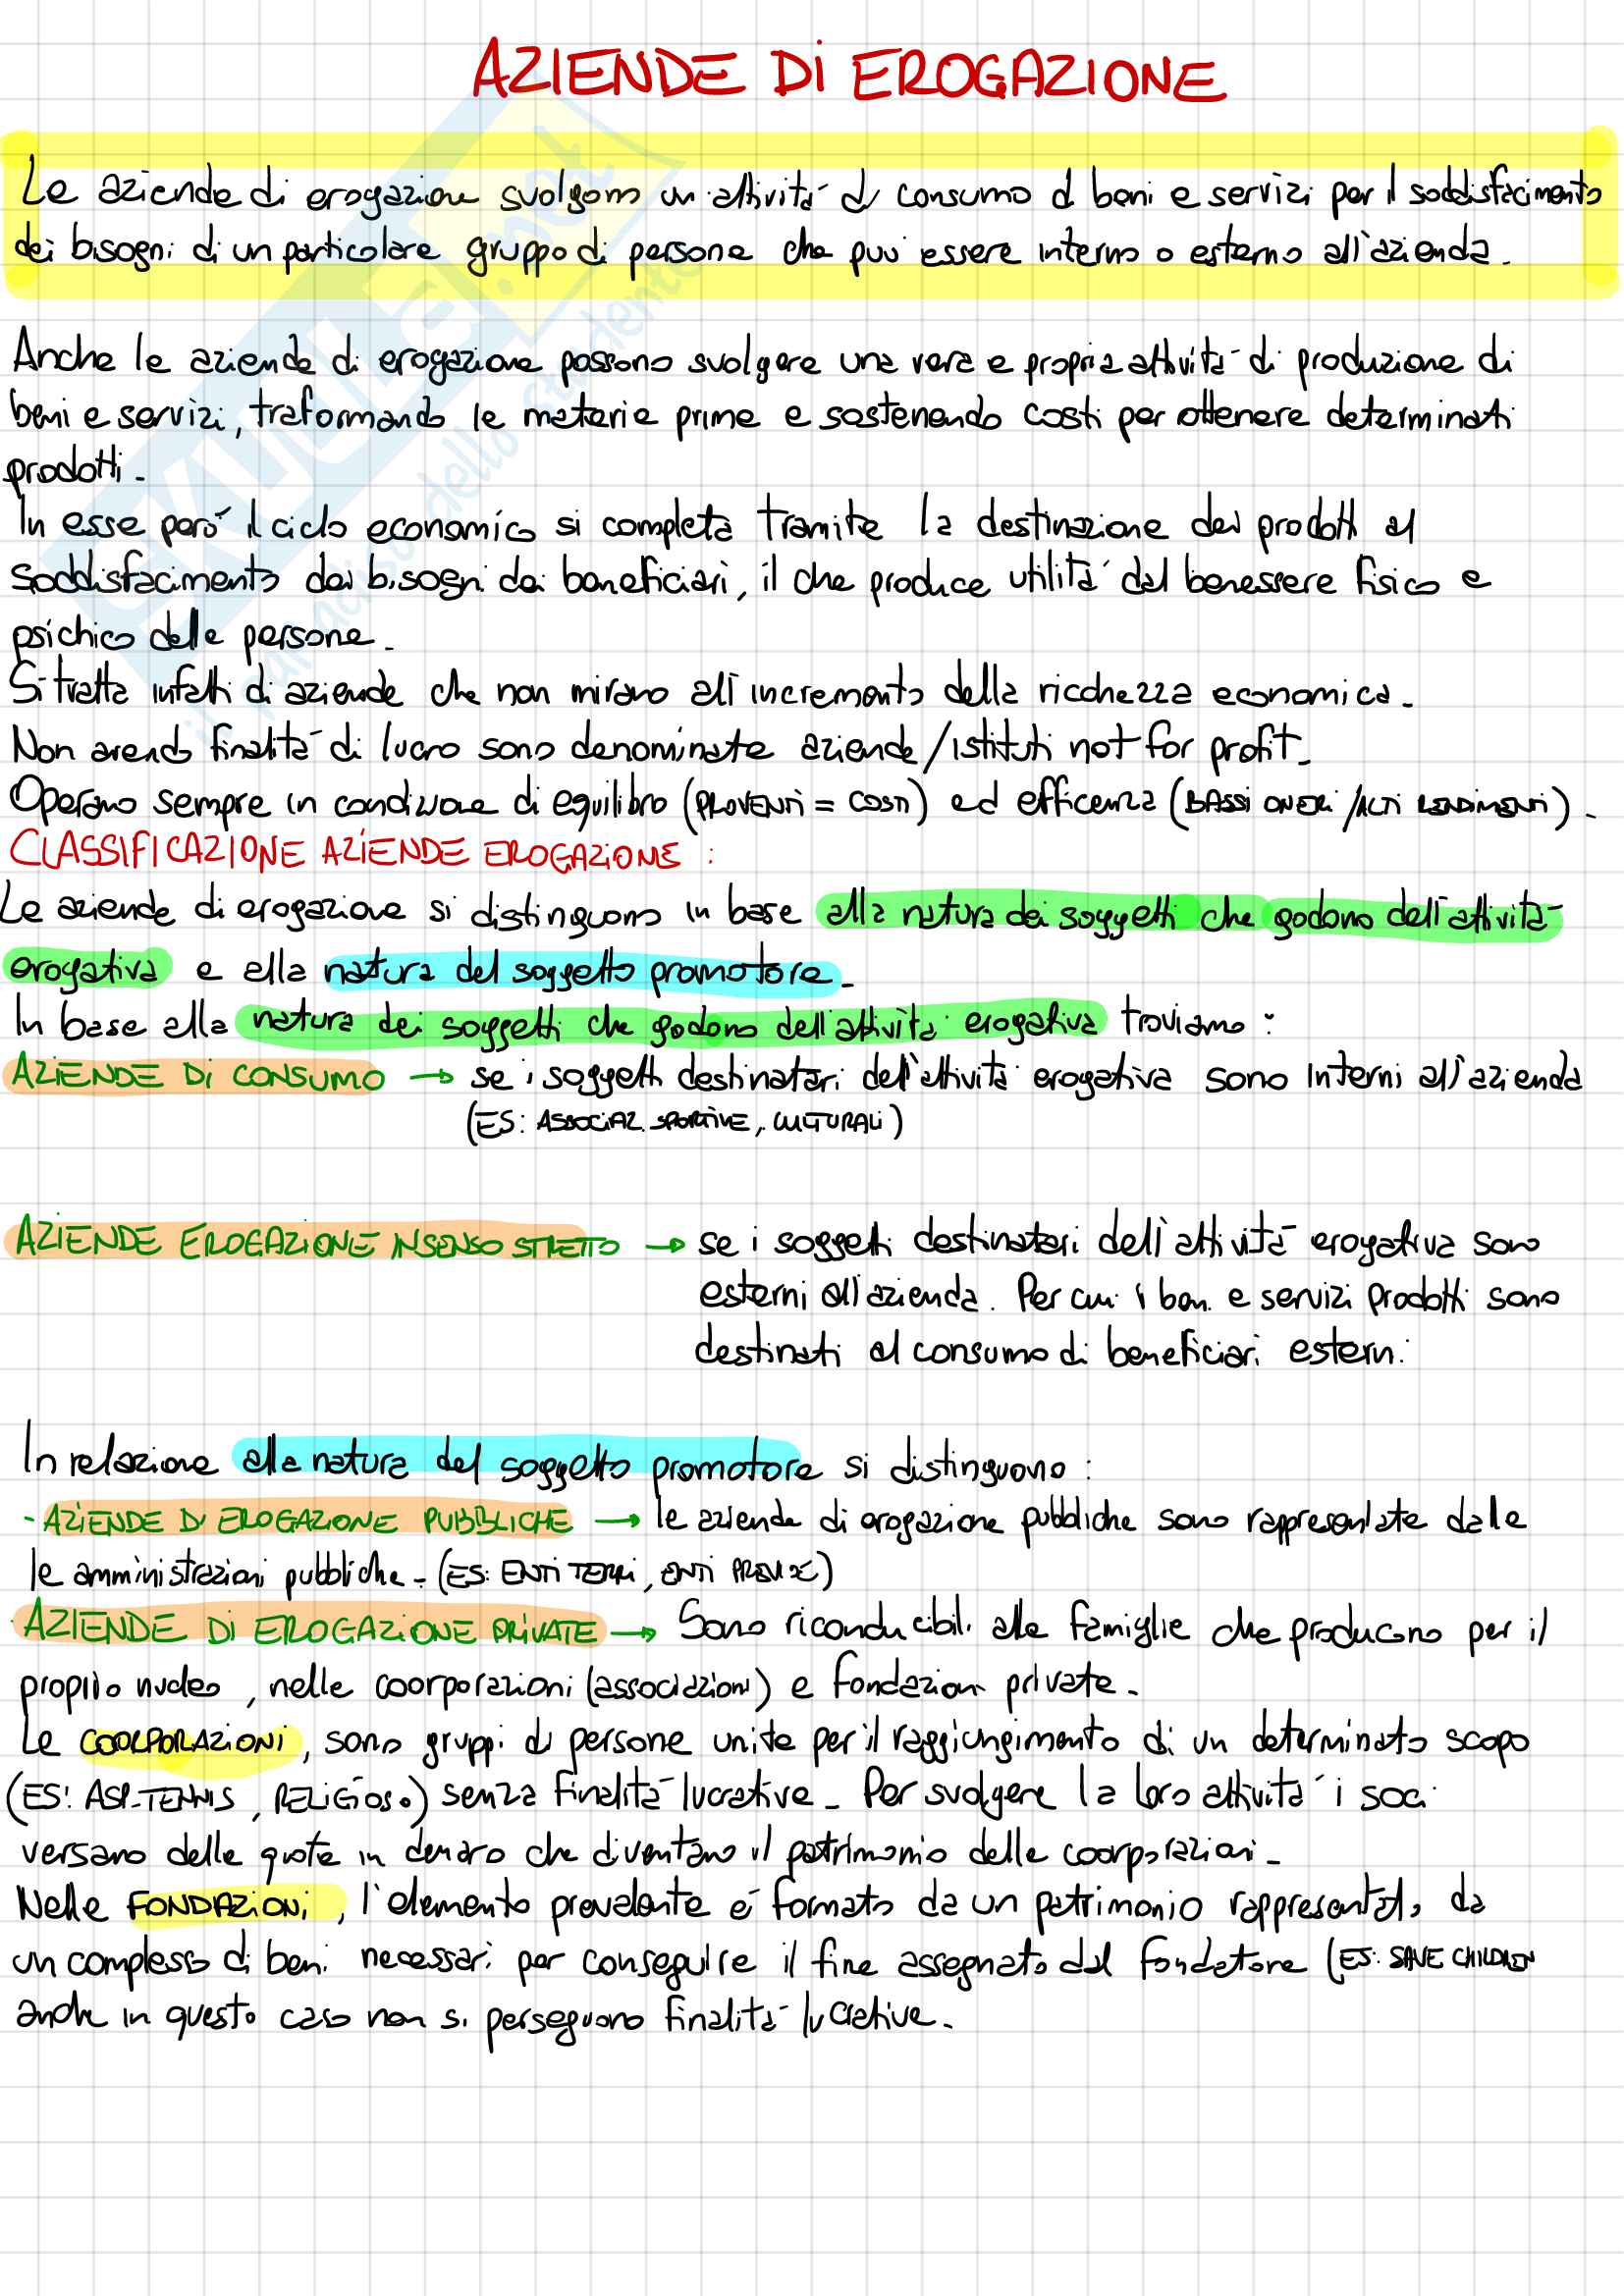 AZIENDE Di EROGAZIONE
Le aziende di erogazione svolgono un'attività di consumo di beni e servizi per il soddisfacimento
dei bisogni di un particolare gruppo di persone che può essere interno o esterno all'azienda.
Anche le aziende di erogazione possono svolgere una vera e propria attività di produzione di
beni e servizi, traformando le materie prime e sostenendo costi per ottenere determinati
prodotti.
In esse però il ciclo economico si completa tramite la destinazione dei prodotti al
soddisfacimento dei bisogni dei beneficiari, il che produce utilità dal benessere fisico e
psichico delle persone.
Si tratta infatti di aziende che non mirano all'incremento della ricchezza economica.
Non avendo finalità di lucro sono denominate aziende/istituti not for profit.
Operano sempre in condizione di equilibro (PROVENTI = COSTI) ed efficenza (BASSI ONERI/ALTI RENDIMENTI).
CLASSIFICAZIONE AZIENDE EROGAZIONE:
Le aziende di erogazione si distinguono in base alla natura dei soggetti che godono dell'attività
erogativa e alla natura del soggetto promotore.
In base alla natura dei soggetti che godono dell'attività erogativa troviamo:
AZIENDE Di CONSUMO → se i soggetti destinatari dell'attività erogativa sono interni all'azienda
(ES: ASSOCIAZ. SPORTIVE, CULTURALI)
AZIENDE EROGAZIONE IN SENSO STRETTO → se i soggetti destinatari dell'attività erogativa sono
esterni all'azienda. Per cui i beni e servizi prodotti sono
destinati al consumo di beneficiari esterni.
In relazione alla natura del soggetto promotore si distinguono:
- AZIENDE Di EROGAZIONE PUBBLICHE → le aziende di erogazione pubbliche sono rappresentate dalle
le amministrazioni pubbliche. (ES: ENTI TERRI, ENTI)
· AZIENDE Di EROGAZIONE PRIVATE → Sono riconducibili alle famiglie che producono per il
proprio nucleo, nelle coorporazioni (associazioni) e fondazioni private.
Le COORPORAZIONI, sono gruppi di persone unite per il raggiungimento di un determinato scopo
(ES: TENNIS, RELIGIOSO) senza finalità lucrative. Per svolgere la loro attività i soci
versano delle quote in denaro che diventano il patrimonio delle coorporazioni.
Nelle FONDAZIONI, l'elemento prevalente è formato da un patrimonio rappresentato da
un complesso di beni necessari per conseguire il fine assegnato dal fondatore (ES: SAVE CHILDREN
anche in questo caso non si perseguono finalità lucrative.
SKUOLA.net
il paradiso dello studente